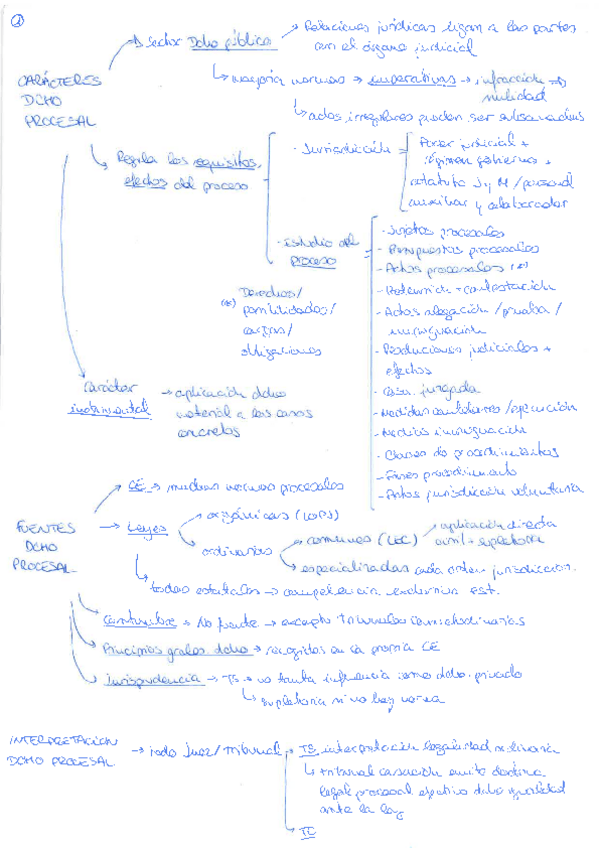 ①
CARÁCTERES
DCHO
PROCESAL
→ Sector Dcho público → Relaciones jurídicas ligan a las partes
con el órgano judicial
↳ mayoría normas → imperativas → infracción →
nulidad
↳ actos irregulares pueden ser subsanados
→ Regula los requisitos,
efectos del proceso
- Jurisdicción =
Poder judicial +
régimen gobierno +
estatuto J y M / personal
auxiliar y colaborador
- Estudio del
proceso
- Sujetos procesales
- Presupuestos procesales
- Actos procesales (*)
- Pretensión + contestación
- Actos alegación / prueba /
impugnación
- Resoluciones judiciales +
efectos
- Cosa juzgada
- Medidas cautelares / ejecución
- Medios impugnación
- Clases de procedimientos
- Fases procedimiento
- Actos jurisdicción voluntaria
(*) Derechos /
posibilidades /
cargas /
obligaciones
Carácter
instrumental
→ aplicación dcho
material a los casos
concretos
FUENTES
DCHO
PROCESAL
→ CE → muchas normas procesales
→ Leyes
→ orgánicas (LOPJ)
→ ordinarias
→ comunes (LEC)
→ aplicación directa
civil + supletoria
→ especializadas cada orden jurisdiccion.
↳ todas estatales → competencia exclusiva Est.
→ Costumbre → No fuente → excepto Tribunales consuetudinarios
→ Principios grales dcho → recogidos en la propia CE
→ Jurisprudencia → TS → no tanta influencia como dcho. privado
↳ supletoria si no hay norma
INTERPRETACIÓN
DCHO PROCESAL
→ todo Juez/Tribunal → TS interpretación legalidad ordinaria
↳ tribunal casación emite doctrina
legal procesal efectivo dcho igualdad
ante la ley
→ TC